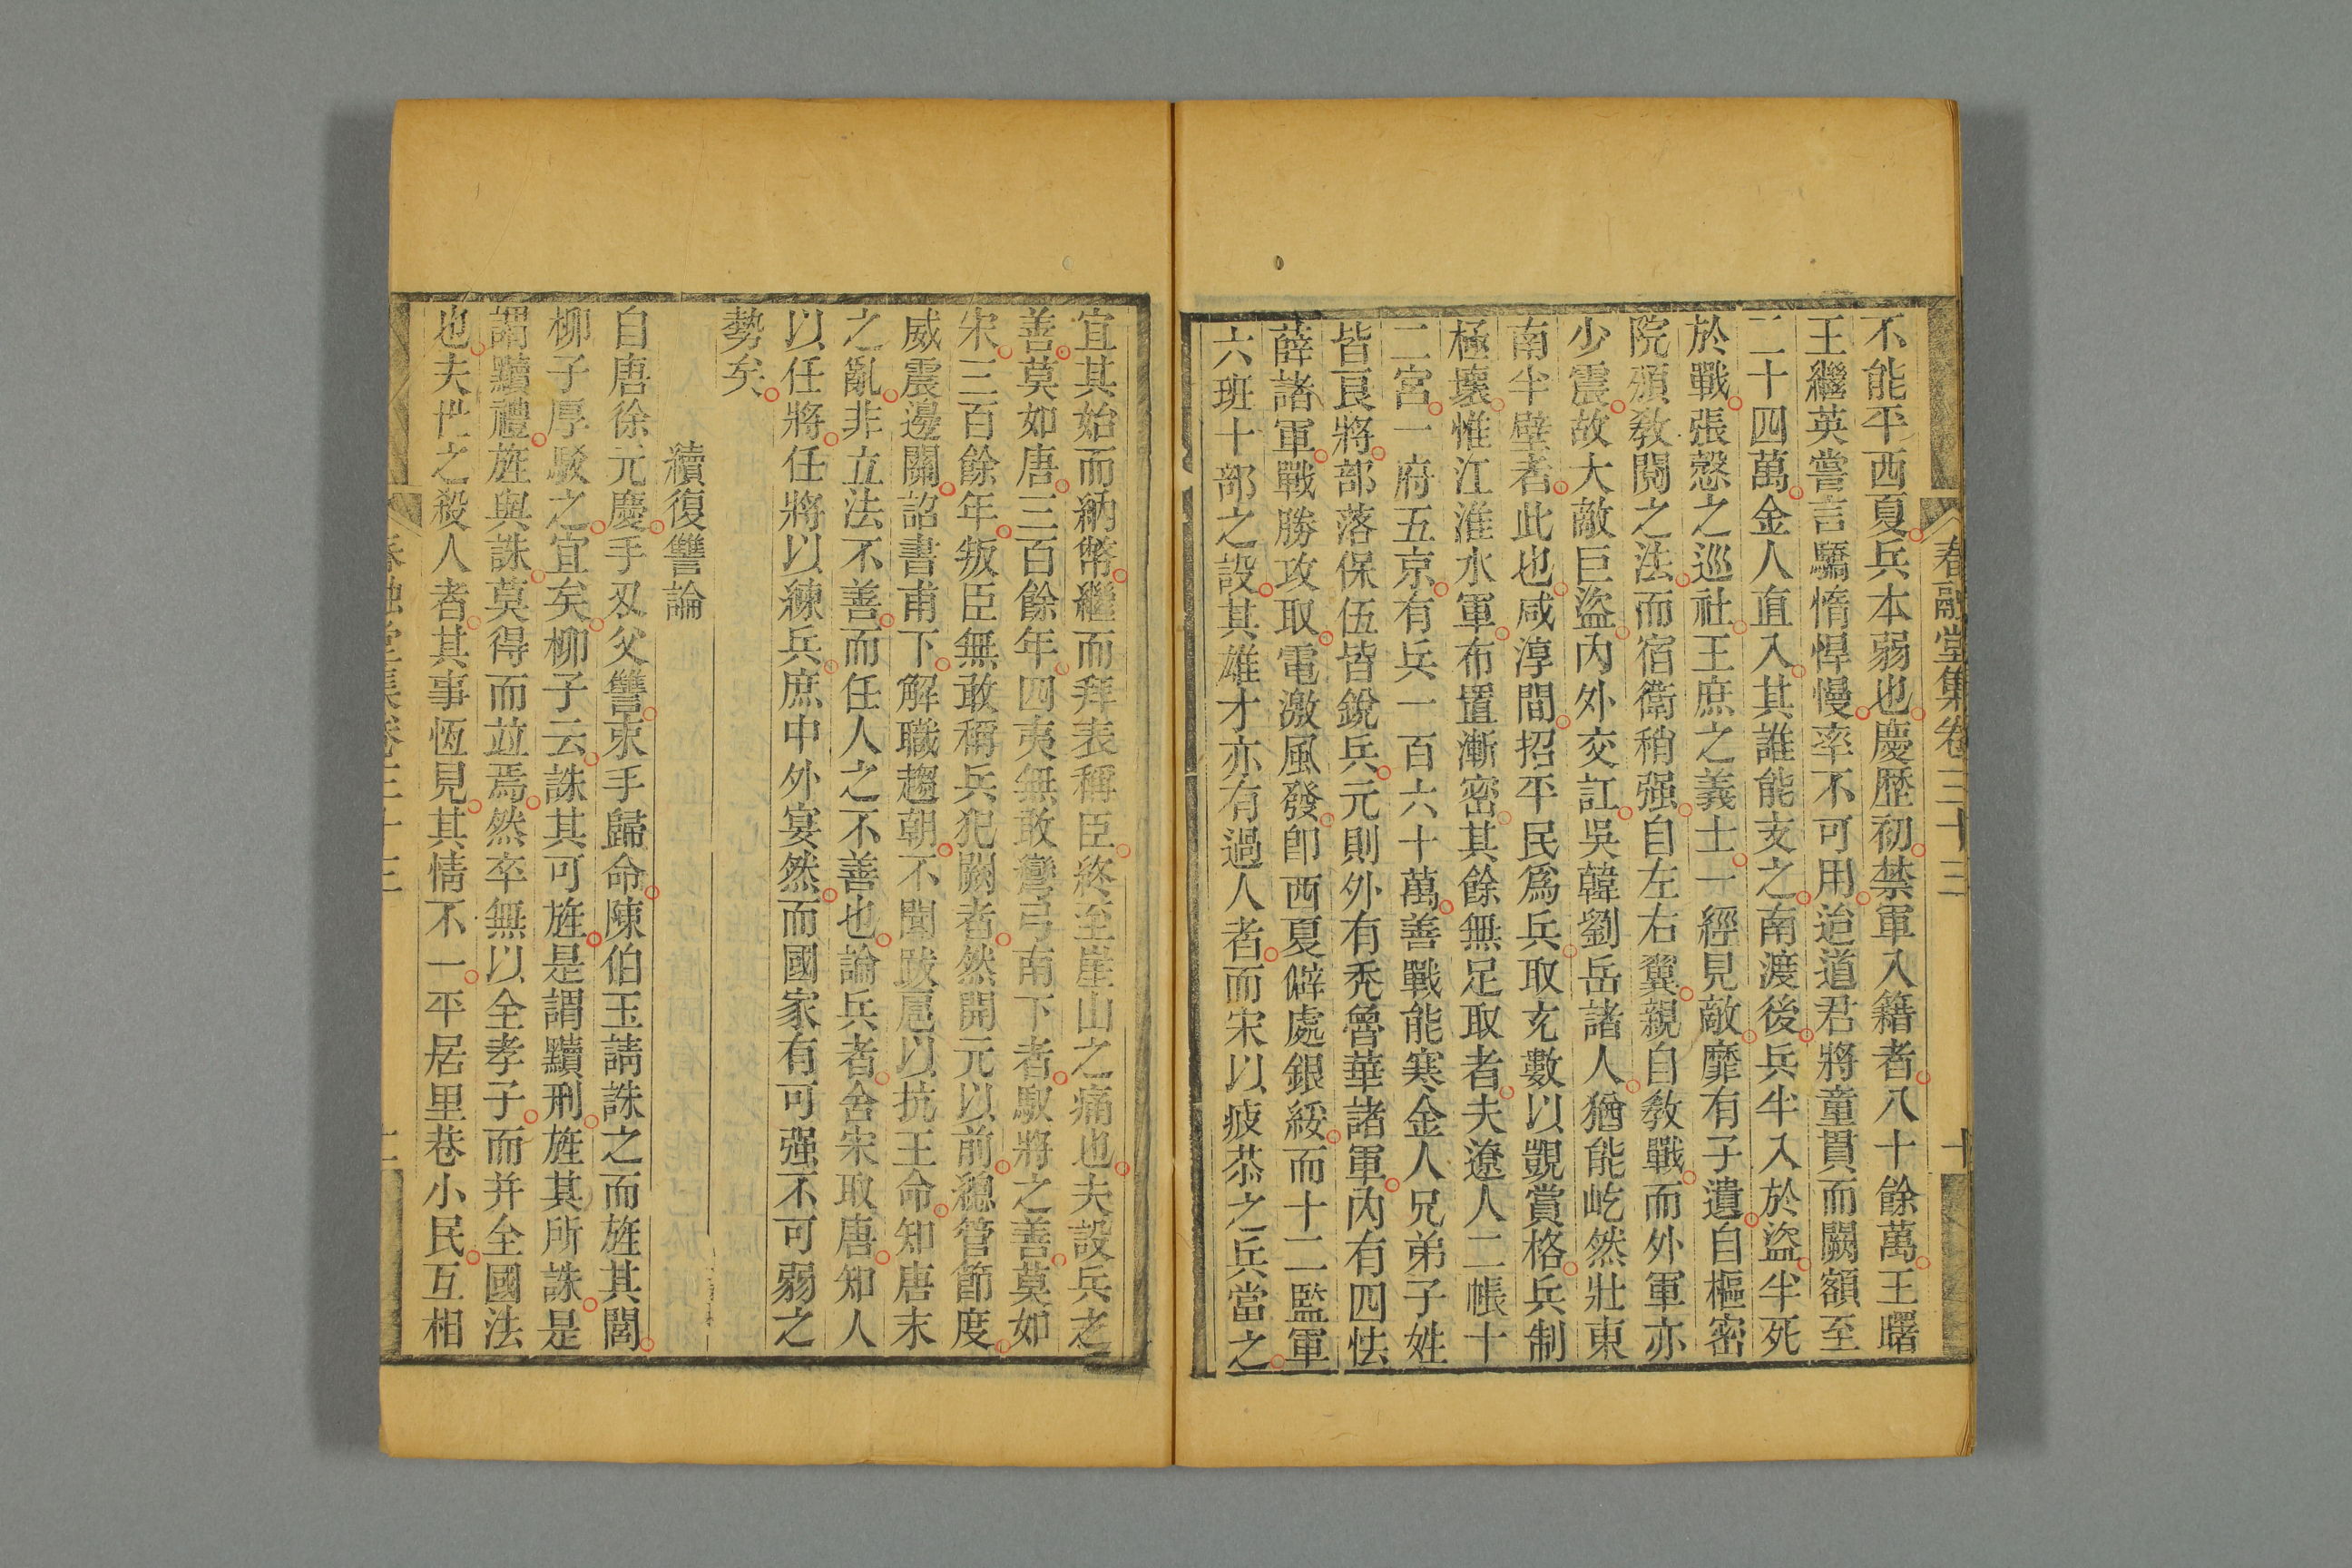 春融堂集卷三十三
十
不能平西夏兵本弱也慶歷初禁軍入籍者八十餘萬王曙
王繼英嘗言驕惰悍慢率不可用迨道君將童貫而闕額至
二十四萬金人直入其誰能支之南渡後兵半入於盜半死
於戰張慤之巡社王庶之義士一經見敵靡有子遺自樞密
院頒敎閱之法而宿衛稍强自左右冀親自敎戰而外軍亦
少震故大敵巨盜內外交訌吳韓劉岳諸人猶能屹然壯東
南半壁者此也咸淳間招平民爲兵取充數以覬賞格兵制
極壞惟江淮水軍布置漸密其餘無足取者夫遼人二帳十
二宮一府五京有兵一百六十萬善戰能寒金人兄弟子姓
皆良將部落保伍皆銳兵元則外有禿魯華諸軍內有四怯
薛諸軍戰勝攻取電激風發卽西夏僻處銀綏而十二監軍
六班十部之設其雄才亦有過人者而宋以疲苶之兵當之
宜其始而納幣繼而拜表稱臣終至崖山之痛也夫設兵之
善莫如唐三百餘年四夷無敢彎弓南下者馭將之善莫如
宋三百餘年叛臣無敢稱兵犯闕者然開元以前總管節度
威震邊關詔書甫下解職趨朝不聞跋扈以抗王命知唐末
之亂非立法不善而任人之不善也論兵者舍宋取唐知人
以任將任將以練兵庶中外宴然而國家有可强不可弱之
勢矣
續復讐論
自唐徐元慶手刄父讐束手歸命陳伯玉請誅之而旌其閭
柳子厚駁之宜矣柳子云誅其可旌是謂黷刑旌其所誅是
謂黷禮旌與誅莫得而竝焉然卒無以全孝子而并全國法
也夫世之殺人者其事恆見其情不一平居里巷小民互相